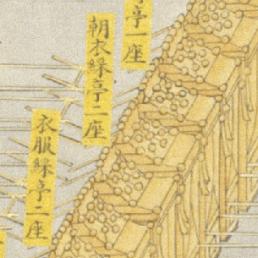 亭一座
朝衣綵亭二座
衣服綵亭二座